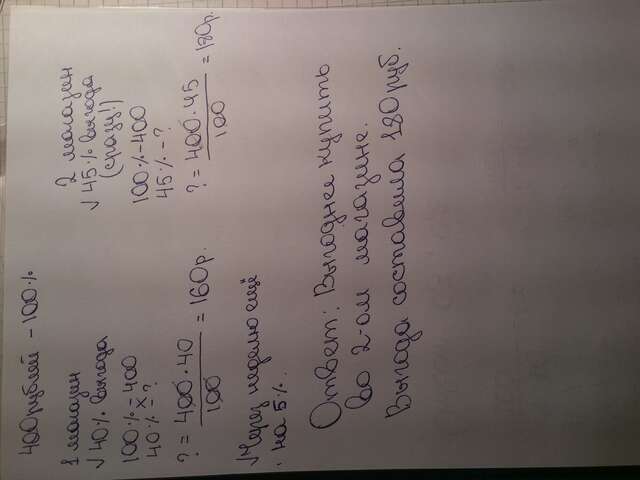 400 рублей - 100%
1 магазин
√ 40% выгода
100% - 400
40% - ?
? = 400·40
100
= 160р.
√ Через неделю ещё
на 5%.
2 магазин
√ 45% выгода
(сразу!)
100% - 400
45% - ?
? = 400·45
100
= 180р.
Ответ: Выгоднее купить
во 2-ом магазине.
Выгода составила 180 руб.